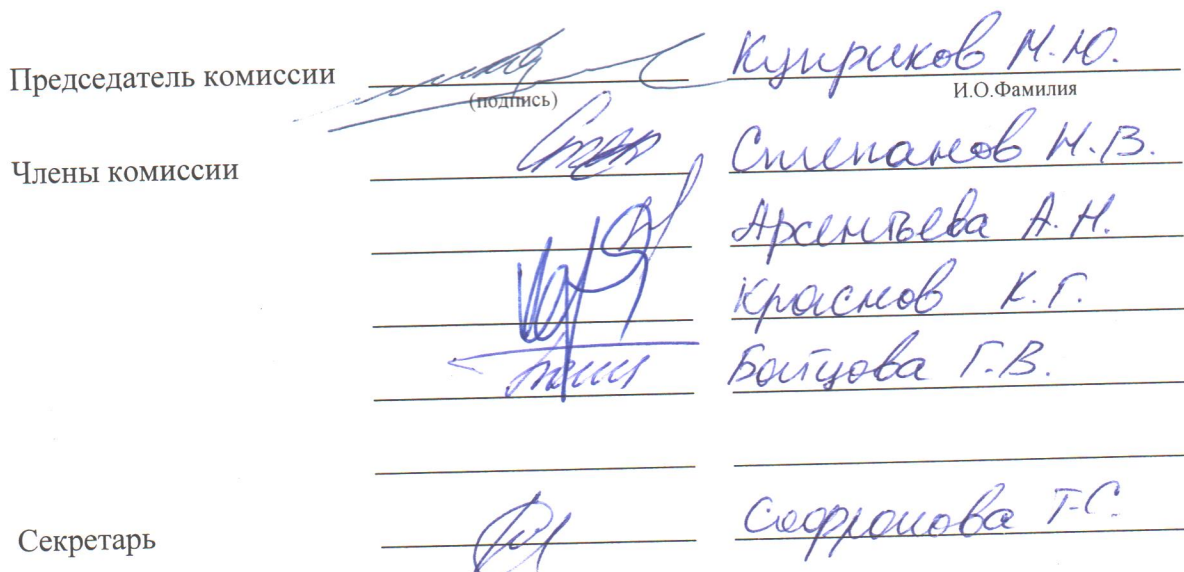 Председатель комиссии Куприков М.Ю.
(подпись) И.О.Фамилия
Члены комиссии Степанов Н.В.
Арсентьева А.Н.
Краснов К.Г.
Бойцова Г.В.
Секретарь Софронова Т.С.